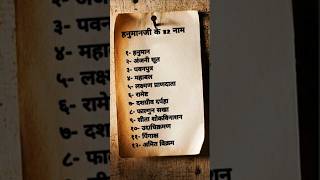 हनुमानजी के १२ नाम
१- हनुमान
२- अंजनी सूत
३- पवनपुत्र
४- महाबल
५- लक्ष्मण प्राणदाता
६- रामेष्ट
७- दशग्रीव दर्पहा
८- फाल्गुन सखा
९- सीता शोकविनाशन
१०- उदधिक्रमण
११- पिंगाक्ष
१२- अमित विक्रम